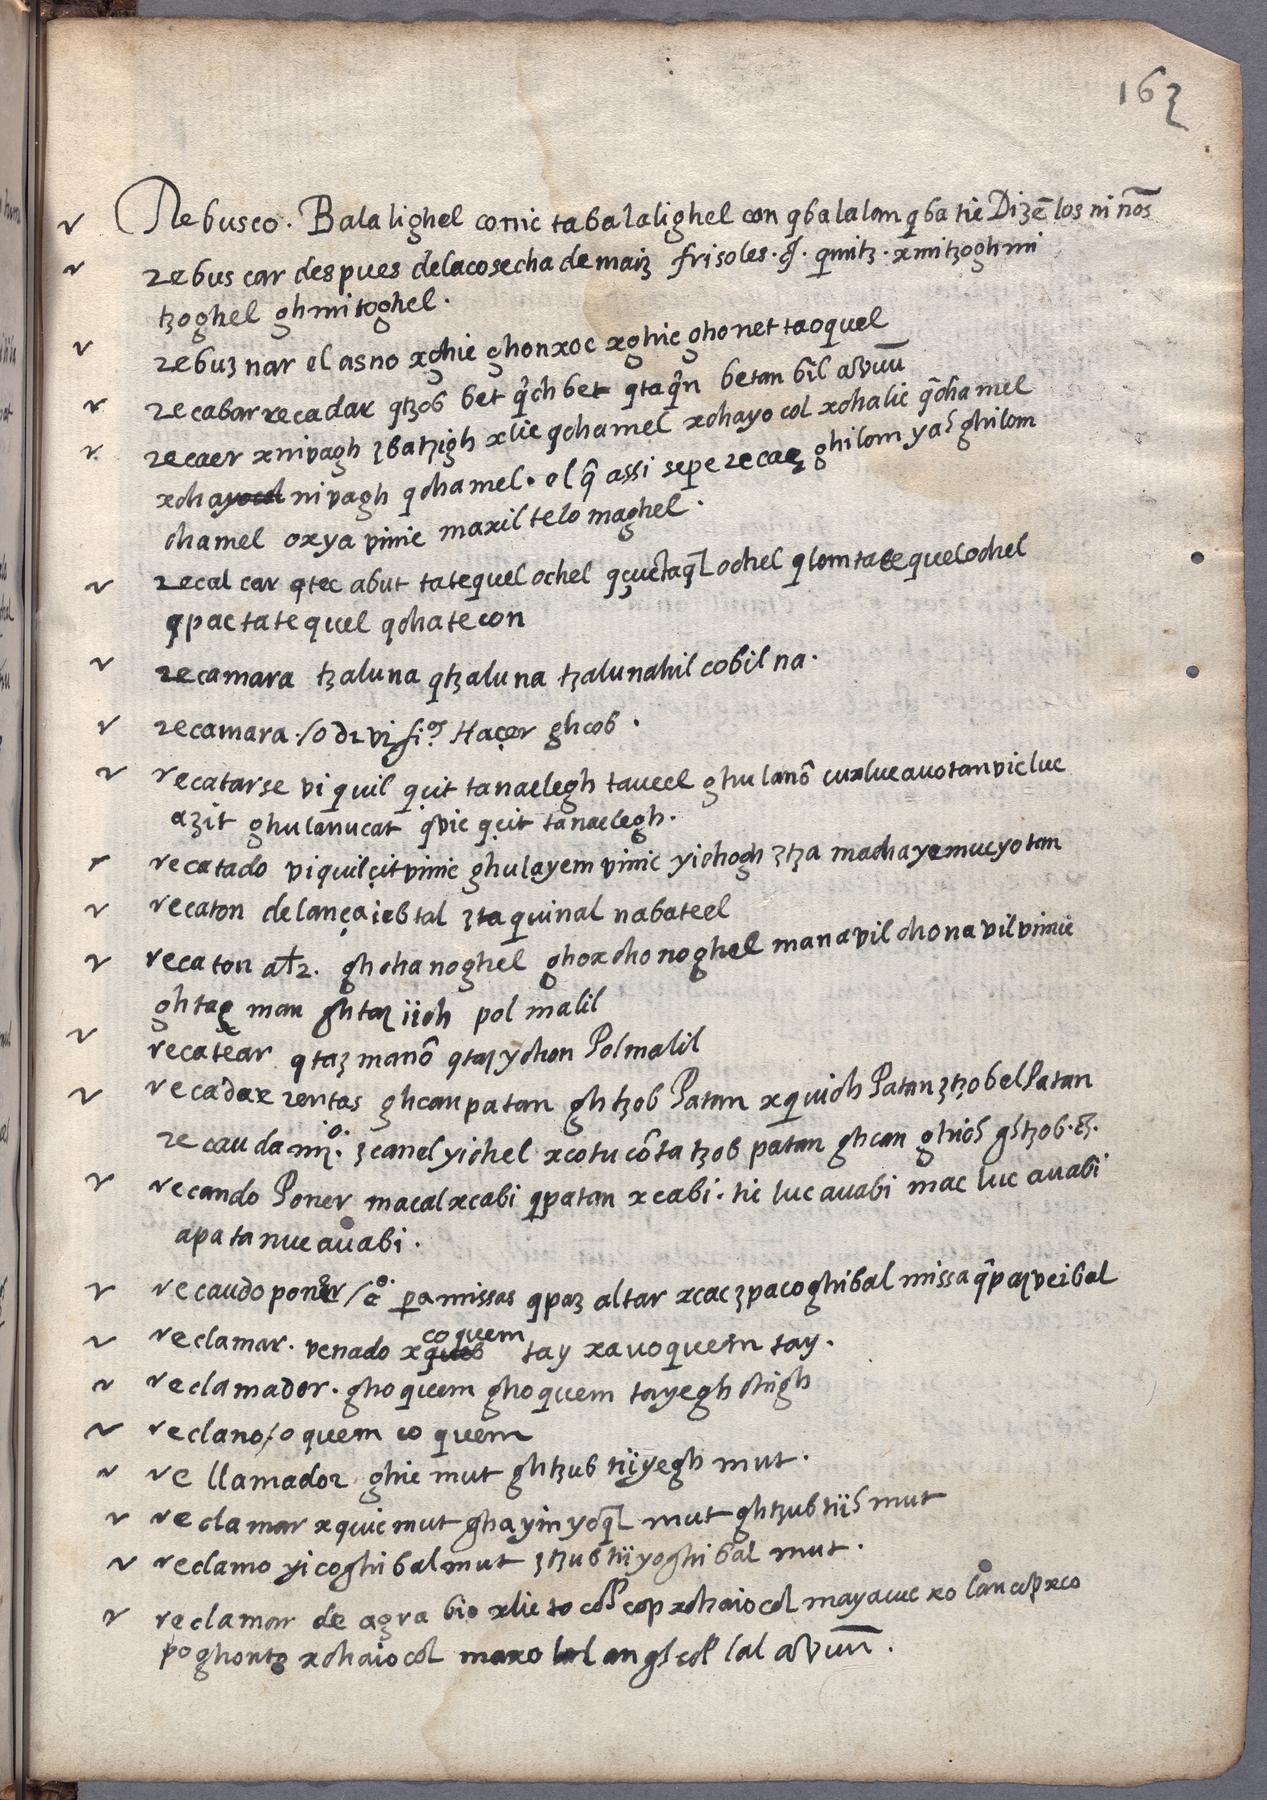 163
Rebusco. Balalighel conic tabalalighel con qbalalom qbatic Dizē los niños
rebuscar despues delacosecha de maiz frisoles. qmitz. xmitzoghmi
tzoghel ghmitoghel.
rebuznar el asno xghic ghonxoc xghic ghonet taoquel
recabar recadar qtzob bet q̄ch bet qtaq̄n betan bil
recaer xnivagh zbatzigh xlic qchamel xchayocol xchalic q̄chamel
xcha nivagh qchamel. el q̄ assi sepe recae ghilom yas ghilom
chamel oxya vinic maxil telo maghel.
recalcar qtec abut tatequel ochel ochel qlomtatequelochel
qpactatequel qchatecon
recamara tzaluna qtzaluna tzalunahil cobil na.
recamara./o Hacer ghcob.
recatarse viquil qcit tanaelegh taveel ghulanō cuxlucavotanvicluc
azit ghulanucat qvic qcit tanaelegh.
recatado viquilcitvinic ghulayem vinic yichogh ztza machayemucyotan
recaton delança iebtal zta quinal nabateel
recaton ghchanoghel ghoxchonoghel manavil chonavilvinic
ghtaz man ghtaz iich polmalil
recatear qtaz manō qtazychon Polmalil
recadar rentas ghcanpatan ghtzob Patan xquich Patan ztzobelPatan
recaudamiº. zcanelyichel xcotucōta tzob patan ghcan ghich gstzob.
recaudo Poner macalxcabi qpatan xcabi. tic luc avabi mac luc avabi
apatanucavabi.
recaudo poner /c pa missas qpaz altar xcaczpacoghibal missa q̄pazveibal
reclamar. venado x coquem tay xavoquem tay.
reclamador. ghoquem ghoquem tayegh chigh
reclano/o quem coquem
re llamador ghic mut ghtzub tiiyegh mut.
reclamar xquic mut ghayinyoq̄l mut ghtzubtiis mut
reclamo yicoghibalmut ztzubtiiyoghibal mut.
reclamar de agrabio xlic to cop xchaiocol mayacuc xo xco
poghonto xchaiocol maxo lal